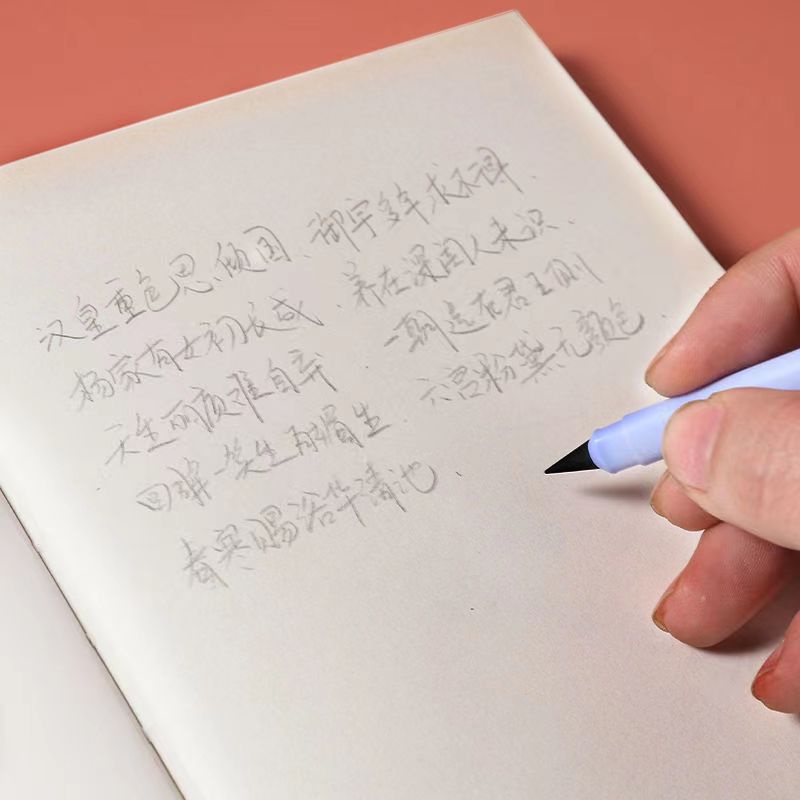 汉皇重色思倾国、御宇多年求不得、
杨家有女初长成、养在深闺人未识、
天生丽质难自弃、一朝选在君王侧
回眸一笑生百媚生、六宫粉黛无颜色、
春寒赐浴华清池、